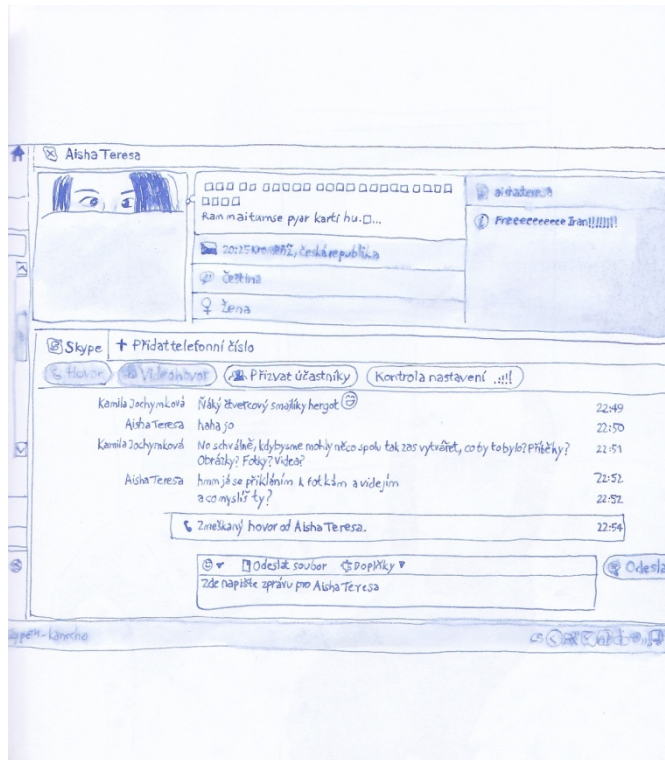 Aisha Teresa
Ram mai tumse pyar karti hu. ...
Freeeeeeeece Iran!!!!!!!!
20:25 Kroměříž, Česká republika
Čeština
Žena
Skype + Přidat telefonní číslo
Hovor Videohovor Přizvat účastníky Kontrola nastavení
Kamila Jochymková Ňáký čtvercový smajlíky hergot 22:49
Aisha Teresa haha jo 22:50
Kamila Jochymková No schválně, kdybysme mohly něco spolu tak zas vytvářet, co by to bylo? Příběhy? 22:51
Obrázky? Fotky? Videa?
Aisha Teresa hmm já se přikláním k fotkám a videjím 22:52
a co myslíš ty? 22:52
Zmeškaný hovor od Aisha Teresa. 22:54
Odeslat soubor Doplňky
Odesla
Zde napište zprávu pro Aisha Teresa